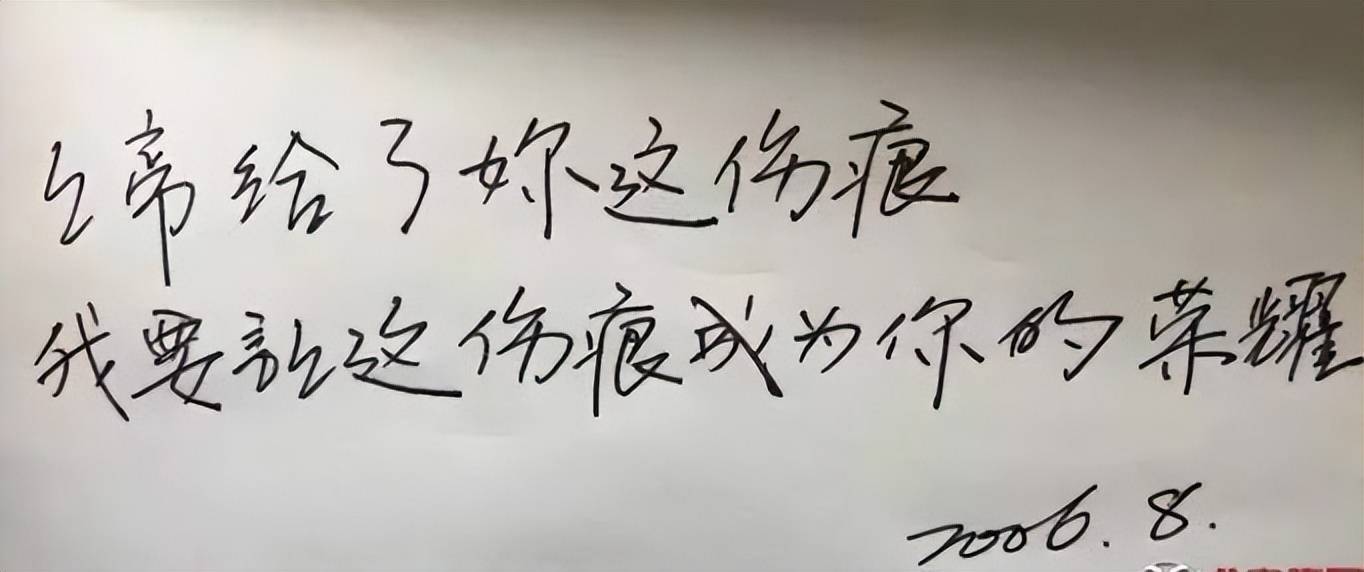 上帝给了妳这伤痕
我要让这伤痕成为你的荣耀
2006.8.